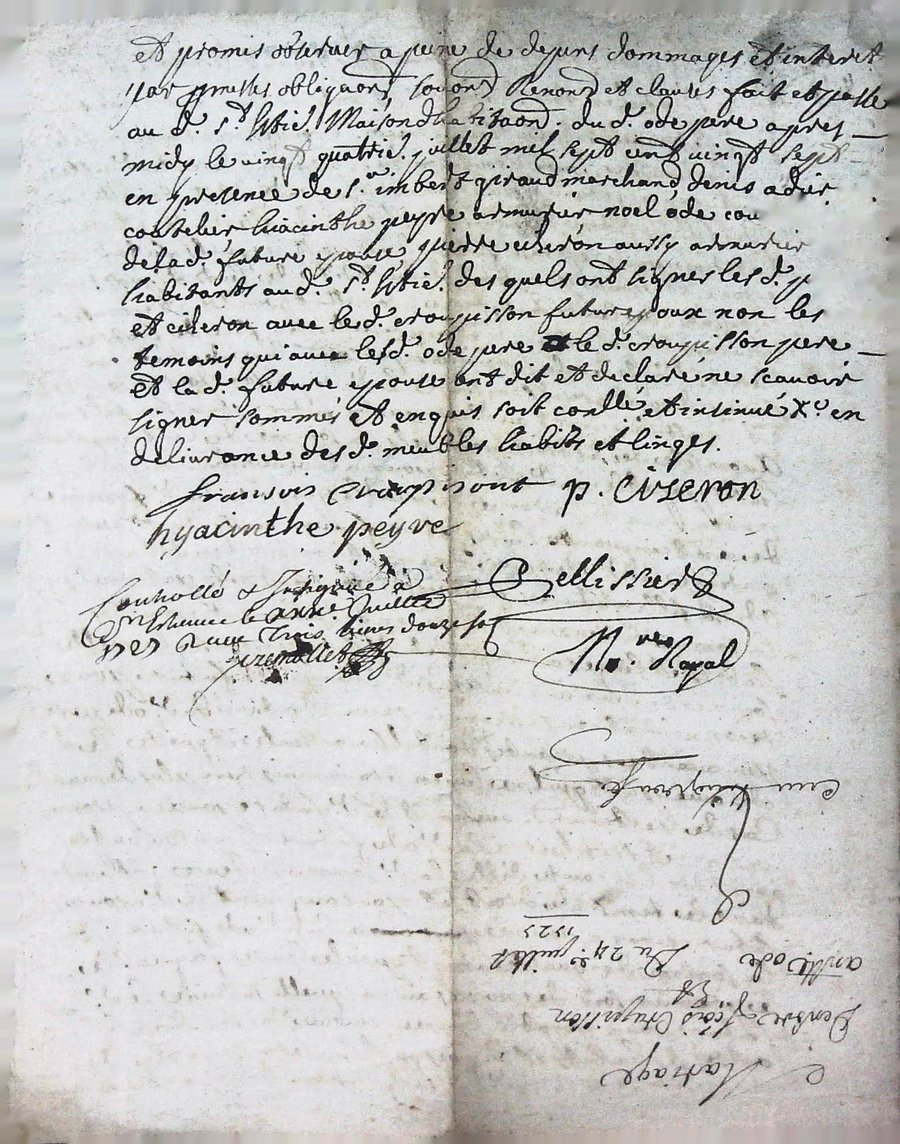 et promis observer a peine de depens dommages et interet
par promesses obligaons soumons Renons et clauses fait et passé
au d. St Etie. Maison d'habitaon. du d. ode pere apres
midy le vingt quatrie. juillet mil sept cent vingt sept
en presence de sr imbert giraud marchand, denis adier
coutelier hiacinthe peyre armurier noel ode cou
de la d. future epouse pierre ciseron aussy armurier
habitants au d. St Etie. des quels ont signer les d. p
et ciseron avec le d. croupisson futur epoux non les
temoins qui avec les d. ode pere et le d. croupisson pere
et la d. future epouse ont dit et declaré ne scavoir
signer sommés et enquis soit conllé et insinué Xe en
delivrance des d. meubles habits et linges.
fransois croupisont p. Ciseron
hyacinthe peyre
Controllé & Insinué à
St Estienne le onze Juillet
1727 Reçu Trois livres douze so
Pellissier
No.re Royal
Mariage
D'entre fcois Crupisson
Et
anthe ode Du 24e juillet
1727